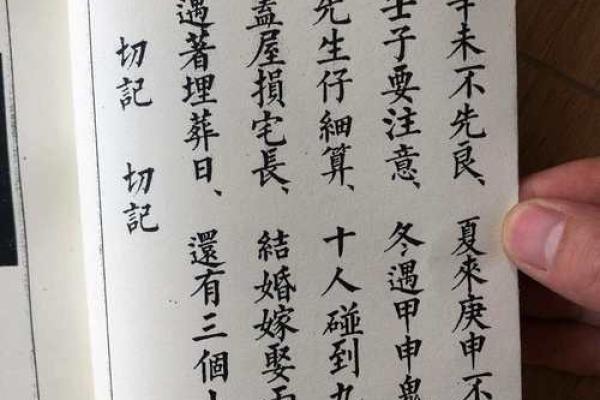 未不先良、夏來庚申不
壬子要注意、冬遇甲申鬼
先生仔細算、十人碰到九
蓋屋損宅長、結婚嫁娶
遇著埋葬日、還有三個
切記 切記